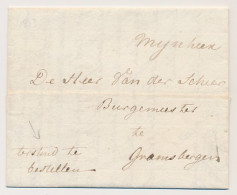 Mijnheer
De Heer Van der Scheer
Burgemeester
te
Gramsbergen
te
bestellen